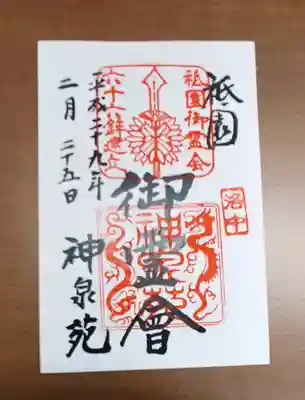 祇園
祇園御霊会
六十六鉾建立
洛中
御霊會
神泉苑
平成二十九年
二月 二十五日
神泉苑